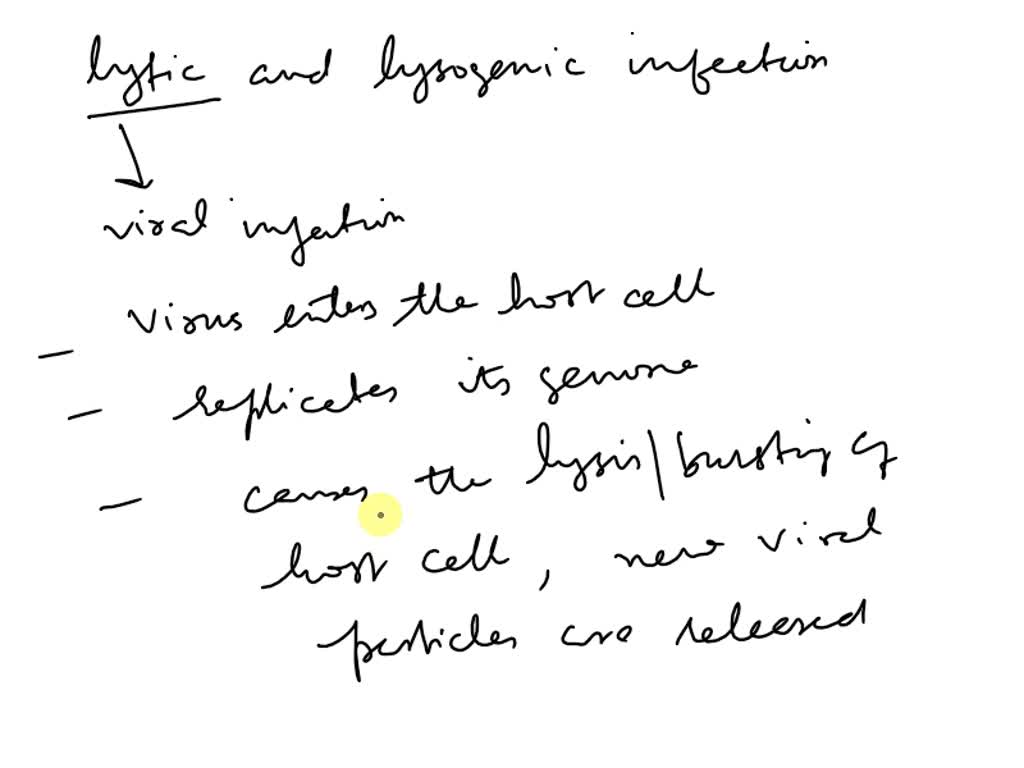 lytic and lysogenic infection
viral infection
Virus enters the host cell
- replicates its genome
- causes the lysis/bursting of
host cell, new viral
particles are released